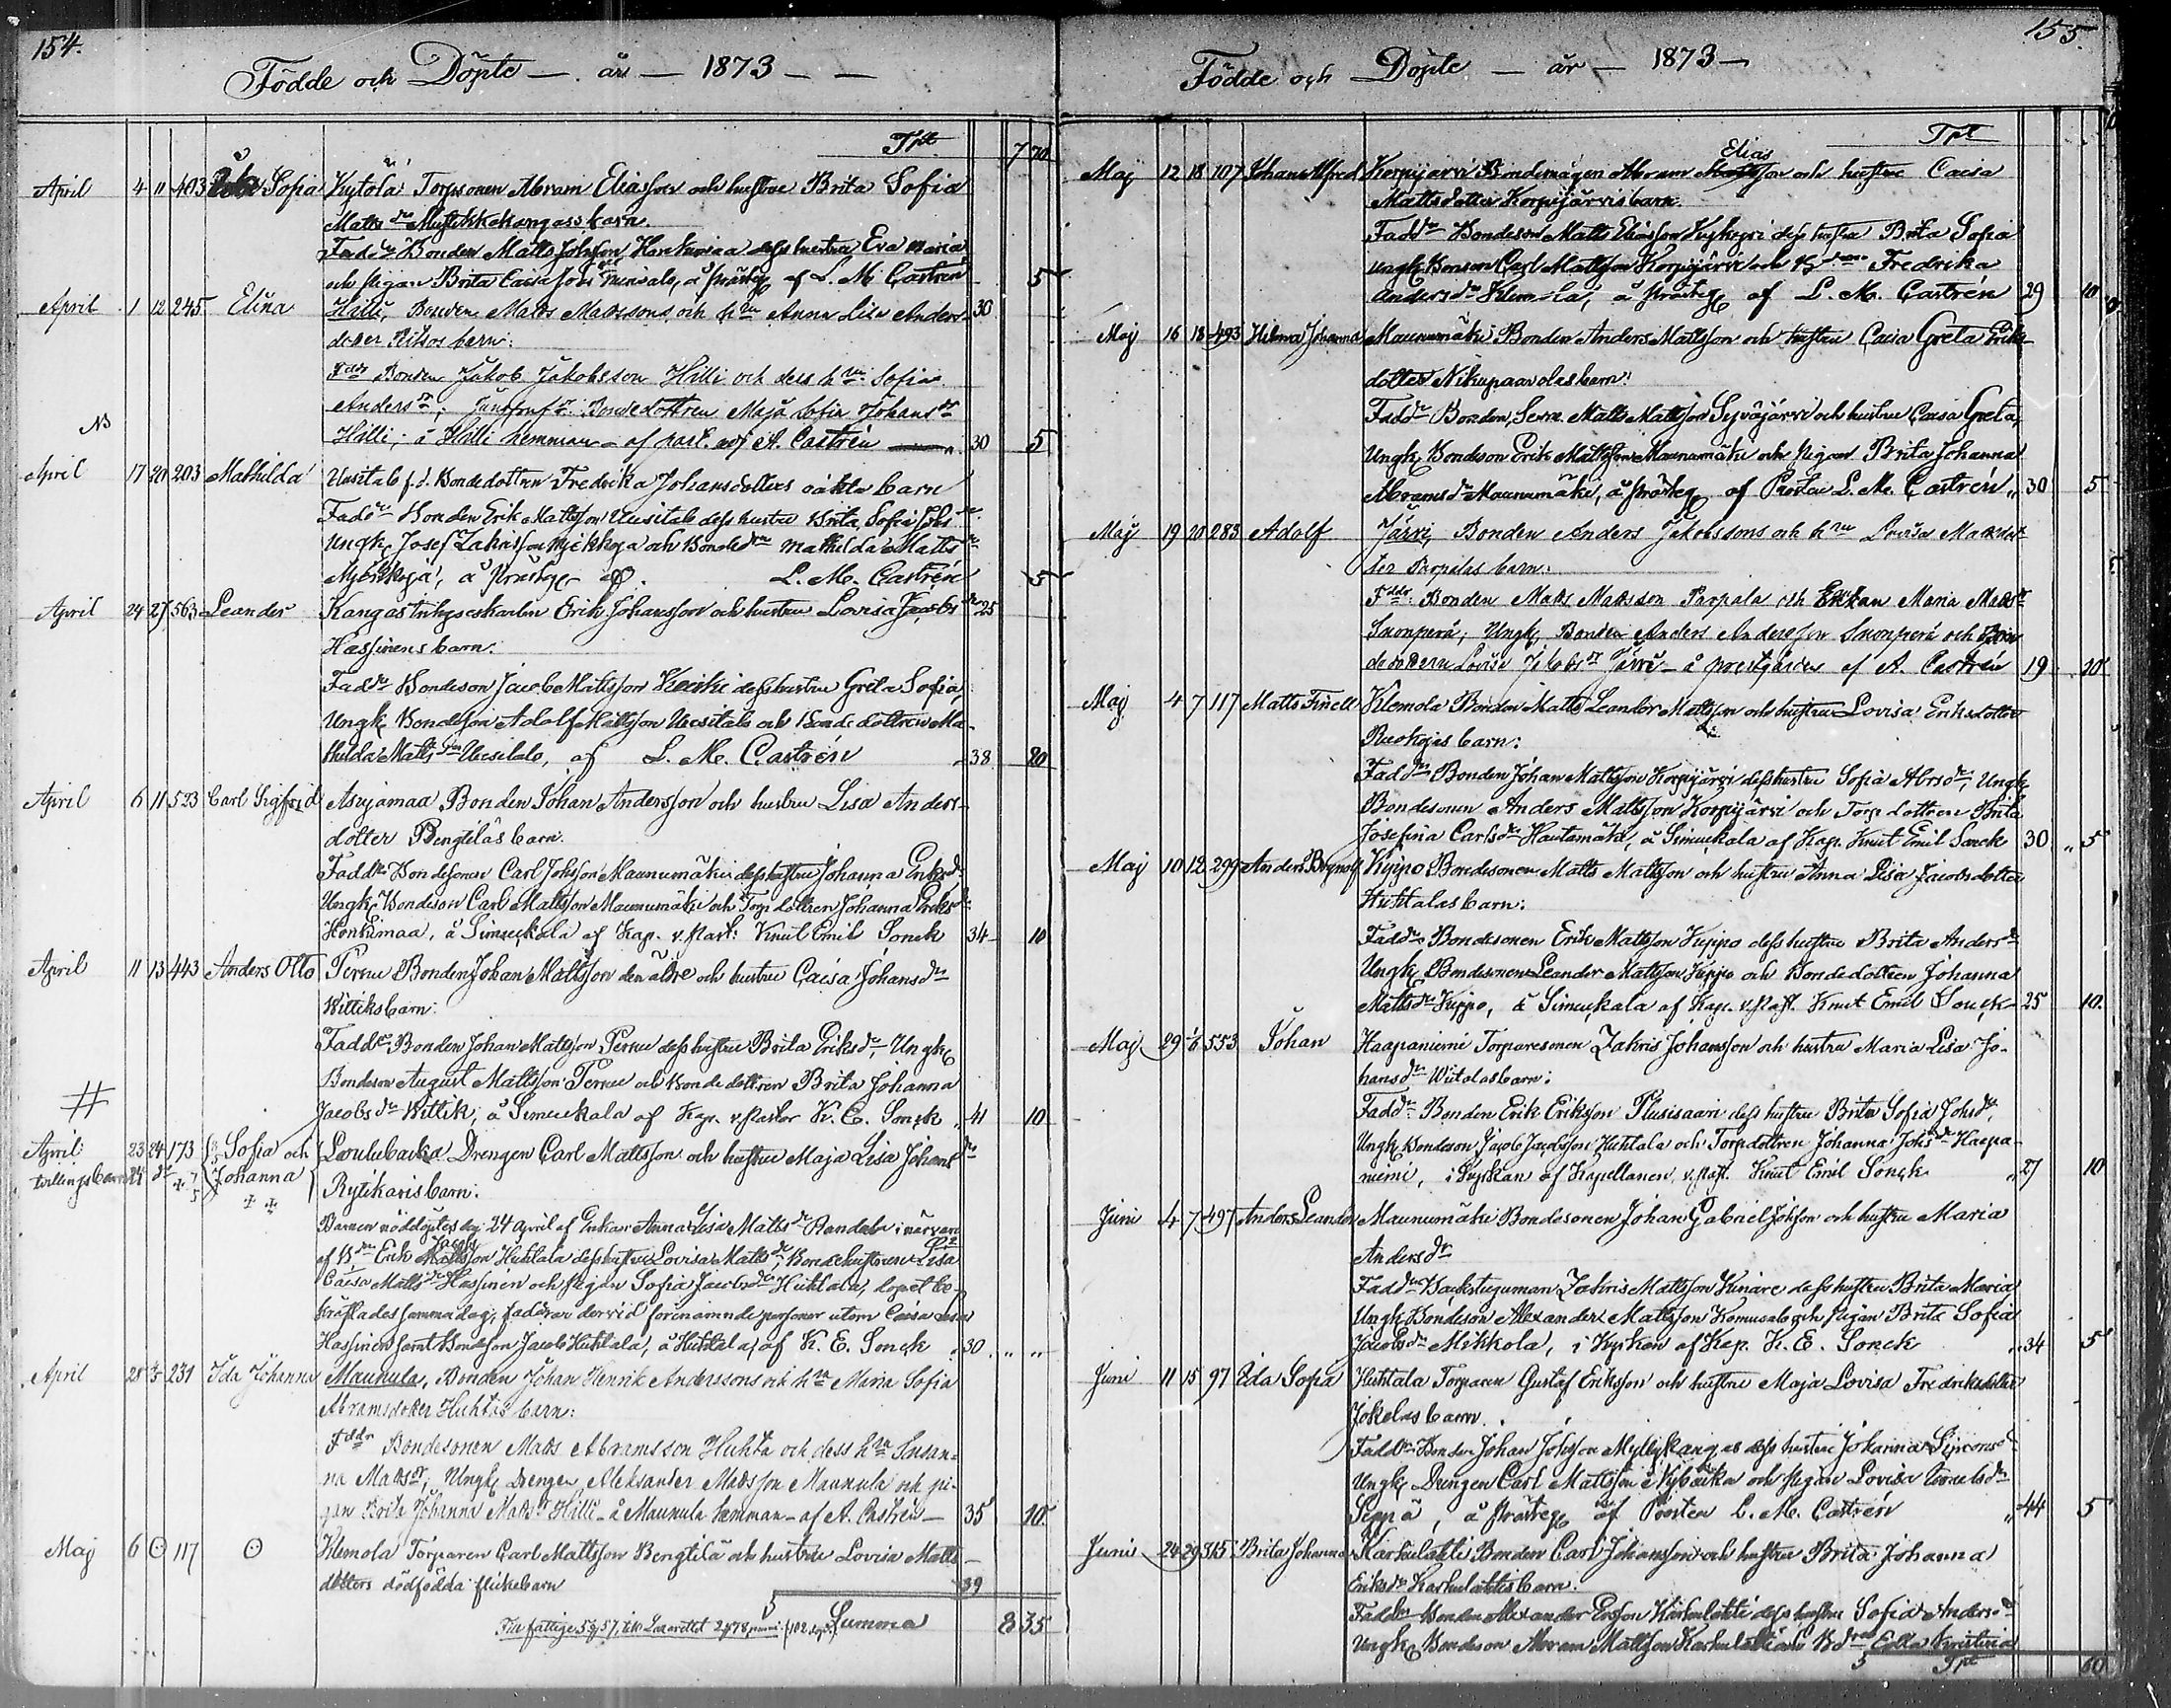 154.
Födde och Döpte — år — 1873 — —
Tpt 7 70
April 4 11 403 Sofia Kytölä Torpsonen Abram Eliasson och hustru Brita Sofia
Matts dr Mustikkakangas barn.
Fadd. Bonden Matts Johsson Honkimaa dess hustru Eva Maria
och pigan Brita Caisa Johs dr, å Prästeg af L. M. Castrén 5
April 1 12 245 Elina Hilli, Bonden Matts Mattssons och h:u Anna Lisa Anders- 30
dotter Ritsos barn:
Fddr Bonden Jakob Jakobsson Hilli och dess h:u Sofia
Andersdr: Jungfruf. Bondedottren Maja Sofia Johansdr
Hilli, å Hilli hemman — af past. adj A. Castrén — 30 5
NB
April 17 20 203 Mathilda Uusitalo f.d. Bondedottren Fredrika Johansdotters oäkta barn
Fadd Bonden Erik Mattsson Uusitalo dess hustru Brita Sofia Johs dr
Ungk Josef Zakrisson och Bonded. Mathilda Matts dr
å Prästeg af L. M. Castrén 5
April 24 27 563 Leander Kangas Erik Johansson och hustru Lovisa Jacobs dr 25
Hassinens barn.
Fadd Bondeson Jacob Mattsson dess hustru Greta Sofia,
Ungk Bondeson Adolf Mattsson Uusitalo och Bondedottren Ma-
thilda Matts dr Uusitalo, af L. M. Castrén 38 20
April 6 11 533 Carl Sigfrid Asujamaa Bonden Johan Andersson och hustru Lisa Anders-
dotter Bengtiläs barn.
Fadd Bondesonen Carl Johsson Maunumäki dess hustru Johanna Eriks dr
Ungk Bondeson Carl Mattsson Maunumäki och Torpdottren Johanna Eriks dr
Honkimaa, å Simuckala af Kap. v. Past: Knut Emil Sonck 34 10
April 11 13 443 Anders Otto Pernu Bonden Johan Mattsson den äldre och hustru Caisa Johans dr
Wittiks barn:
Fadd: Bonden Johan Mattsson Pernu dess hustru Brita Eriks dr, Ungk
Bondeson August Mattsson Pernu och Bondedottren Brita Johanna
Jacobs dr Wittik, å Simuckala af Kap. v. Pastor K. E. Sonck 41 10
April 23 24 173 Sofia och Loulubacka Drengen Carl Mattsson och hustru Maja Lisa Johans dr
tvillingsbarn Johanna Rytikaris barn:
Barnen nöddöptes dag 24 april af Enkan Anna Lisa Matts dr i närvaro
af Erik Jacobsson Huhtala dess hustru Lovisa Matts dr, Bondehustrun Lisa
Caisa Matts dr Hassinen och pigan Sofia Jacobs dr Huhtala, dopet be-
kräftades samma dag, faddrar dervid förenämnde personer utom Caisa Lisa
Hassinen samt Bondeson Jacob Huhtala, å Huhtala, af K. E. Sonck 30 " "
April 28 231 Ida Johanna Maunula, Bonden Johan Henrik Anderssons och h:u Maria Sofia
Abramsdotter Huhtas barn:
Fddr Bondesonen Matts Abramsson Huhta och dess h:u Susan-
na Mattsdr, Ungk Drengen Aleksander Mattsson Maunula och pi-
gan Brita Johanna Mattsdr Hilli — å Maunula hemman — af A. Castrén — 35 10.
Maj 6 ⊙ 117 ⊙ Klemola Torparen Carl Mattsson Bengtilä och hustru Lovisa Matts-
dotters dödfödda flickebarn 39
5
Summa 8 35
155.
Födde och Döpte — år — 1873 —
Tpt
Elias
Maj 12 18 107 Johan Alfred Korpijärvi Bondemågen Abram son och hustru Caisa
Mattsdotter Korpijärvis barn.
Fadd Bondeson Matts Eliasson dess hustru Brita Sofia
Ungk Bonson Carl Mattsson Korpijärvi och Fredrika
Anders dr Klemola, å Prästeg af L. M. Castrén 29 10
Maj 16 18 493 Hilma Johanna Maunumäki Bonden Anders Mattsson och hustru Caisa Greta Eriks-
dotter Nikupaavolas barn:
Fadd Bonden, Matts Mattsson Syväjärvi och hustru Caisa Greta,
Ungk Bondeson Erik Mattsson Maunumäki och Pigan Brita Johanna
Abrams dr Maunumäki, å Prästeg af Prosten L. M. Castrén " 30 5
Maj 19 20 283 Adolf Järvi, Bonden Anders Jakobssons och h:u Lovisa Mattsdot-
ter Parpalas barn:
Fddr: Bonden Matts Mattsson Parpala och Enkan Maria Mattsdr
Suonperä, Ungk Bonden Anders Andersson Suonperä och Bon-
dedottern Lovisa Jakobsdr Järvi — å prestgården af A. Castrén 19 20
Maj 4 7 117 Matts Finell Klemola Bonden Matts Leander Mattsson och hustru Lovisa Eriksdotter
Ruokojas barn:
Fadd Bonden Johan Mattsson Korpijärvi dess hustru Sofia Abrsdr, Ungk
Bondesonen Anders Mattsson Korpijärvi och Torpdottren Brita
Josefina Carls dr Hautamäki, å Simuckala af Kap. Knut Emil Sonck 30 " 5
Maj 10 12 299 Anders Brynolf Kuppo Bondesonen Matts Mattsson och hustru Anna Lisa Jacobsdotter
Huhtalas barn:
Fadd Bondesonen Erik Mattsson Kuppo dess hustru Brita Anders dr
Ungk Bondesonen Leander Mattsson Kuppo och Bondedottren Johanna
Matts dr Kuppo, å Simuckala af Kap. v. Past. Knut Emil Sonck — 25 10.
Maj 29 553 Johan Haapaniemi Torparesonen Zakris Johansson och hustru Maria Lisa Jo-
hans dr Wiitalas barn:
Fadd: Bonden Erik Eriksson Plusisaari dess hustru Brita Sofia Johs dr,
Ungk Bondeson Jacob Jacobsson Huhtala och Torpdottren Johanna Johs dr Haapa-
niemi, i Kyrkan af Kapellanen, v. Past. Knut Emil Sonck " 27 10
Juni 4 7 497 Anders Leander Maunumäki Bondesonen Johan Gabriel Johsson och hustru Maria
Anders dr
Fadd Backstuguman Zakris Mattsson Kunäre dess hustru Brita Maria
Ungk Bondeson Alexander Mattsson och Pigan Brita Sofia
Jacobs dr Mikkola, i Kyrkan af Kap. K. E. Sonck " 34 5
Juni 11 15 97 Ida Sofia Huhtala Torparen Gustaf Eriksson och hustru Maja Lovisa Fredriksdotter
Jokelas barn.
Fadd: Bonden Johan Johsson Myllykangas dess hustru Johanna Simons dr
Ungk Drengen Carl Mattsson å Nybacka och Pigan Lovisa
Seppä, å Prästeg af Prosten L. M. Castrén " 44 5
Juni 24 29 315 Brita Johanna Karhulahti Bonden Carl Johansson och hustru Brita Johanna
Eriks dr Karhulahtis barn:
Fadd Bonden Alexander Ersson Karhulahti dess hustru Sofia Anders dr
Ungk Bondeson Abram Mattsson Karhulahti Edla Kristina
5 Tpt 60